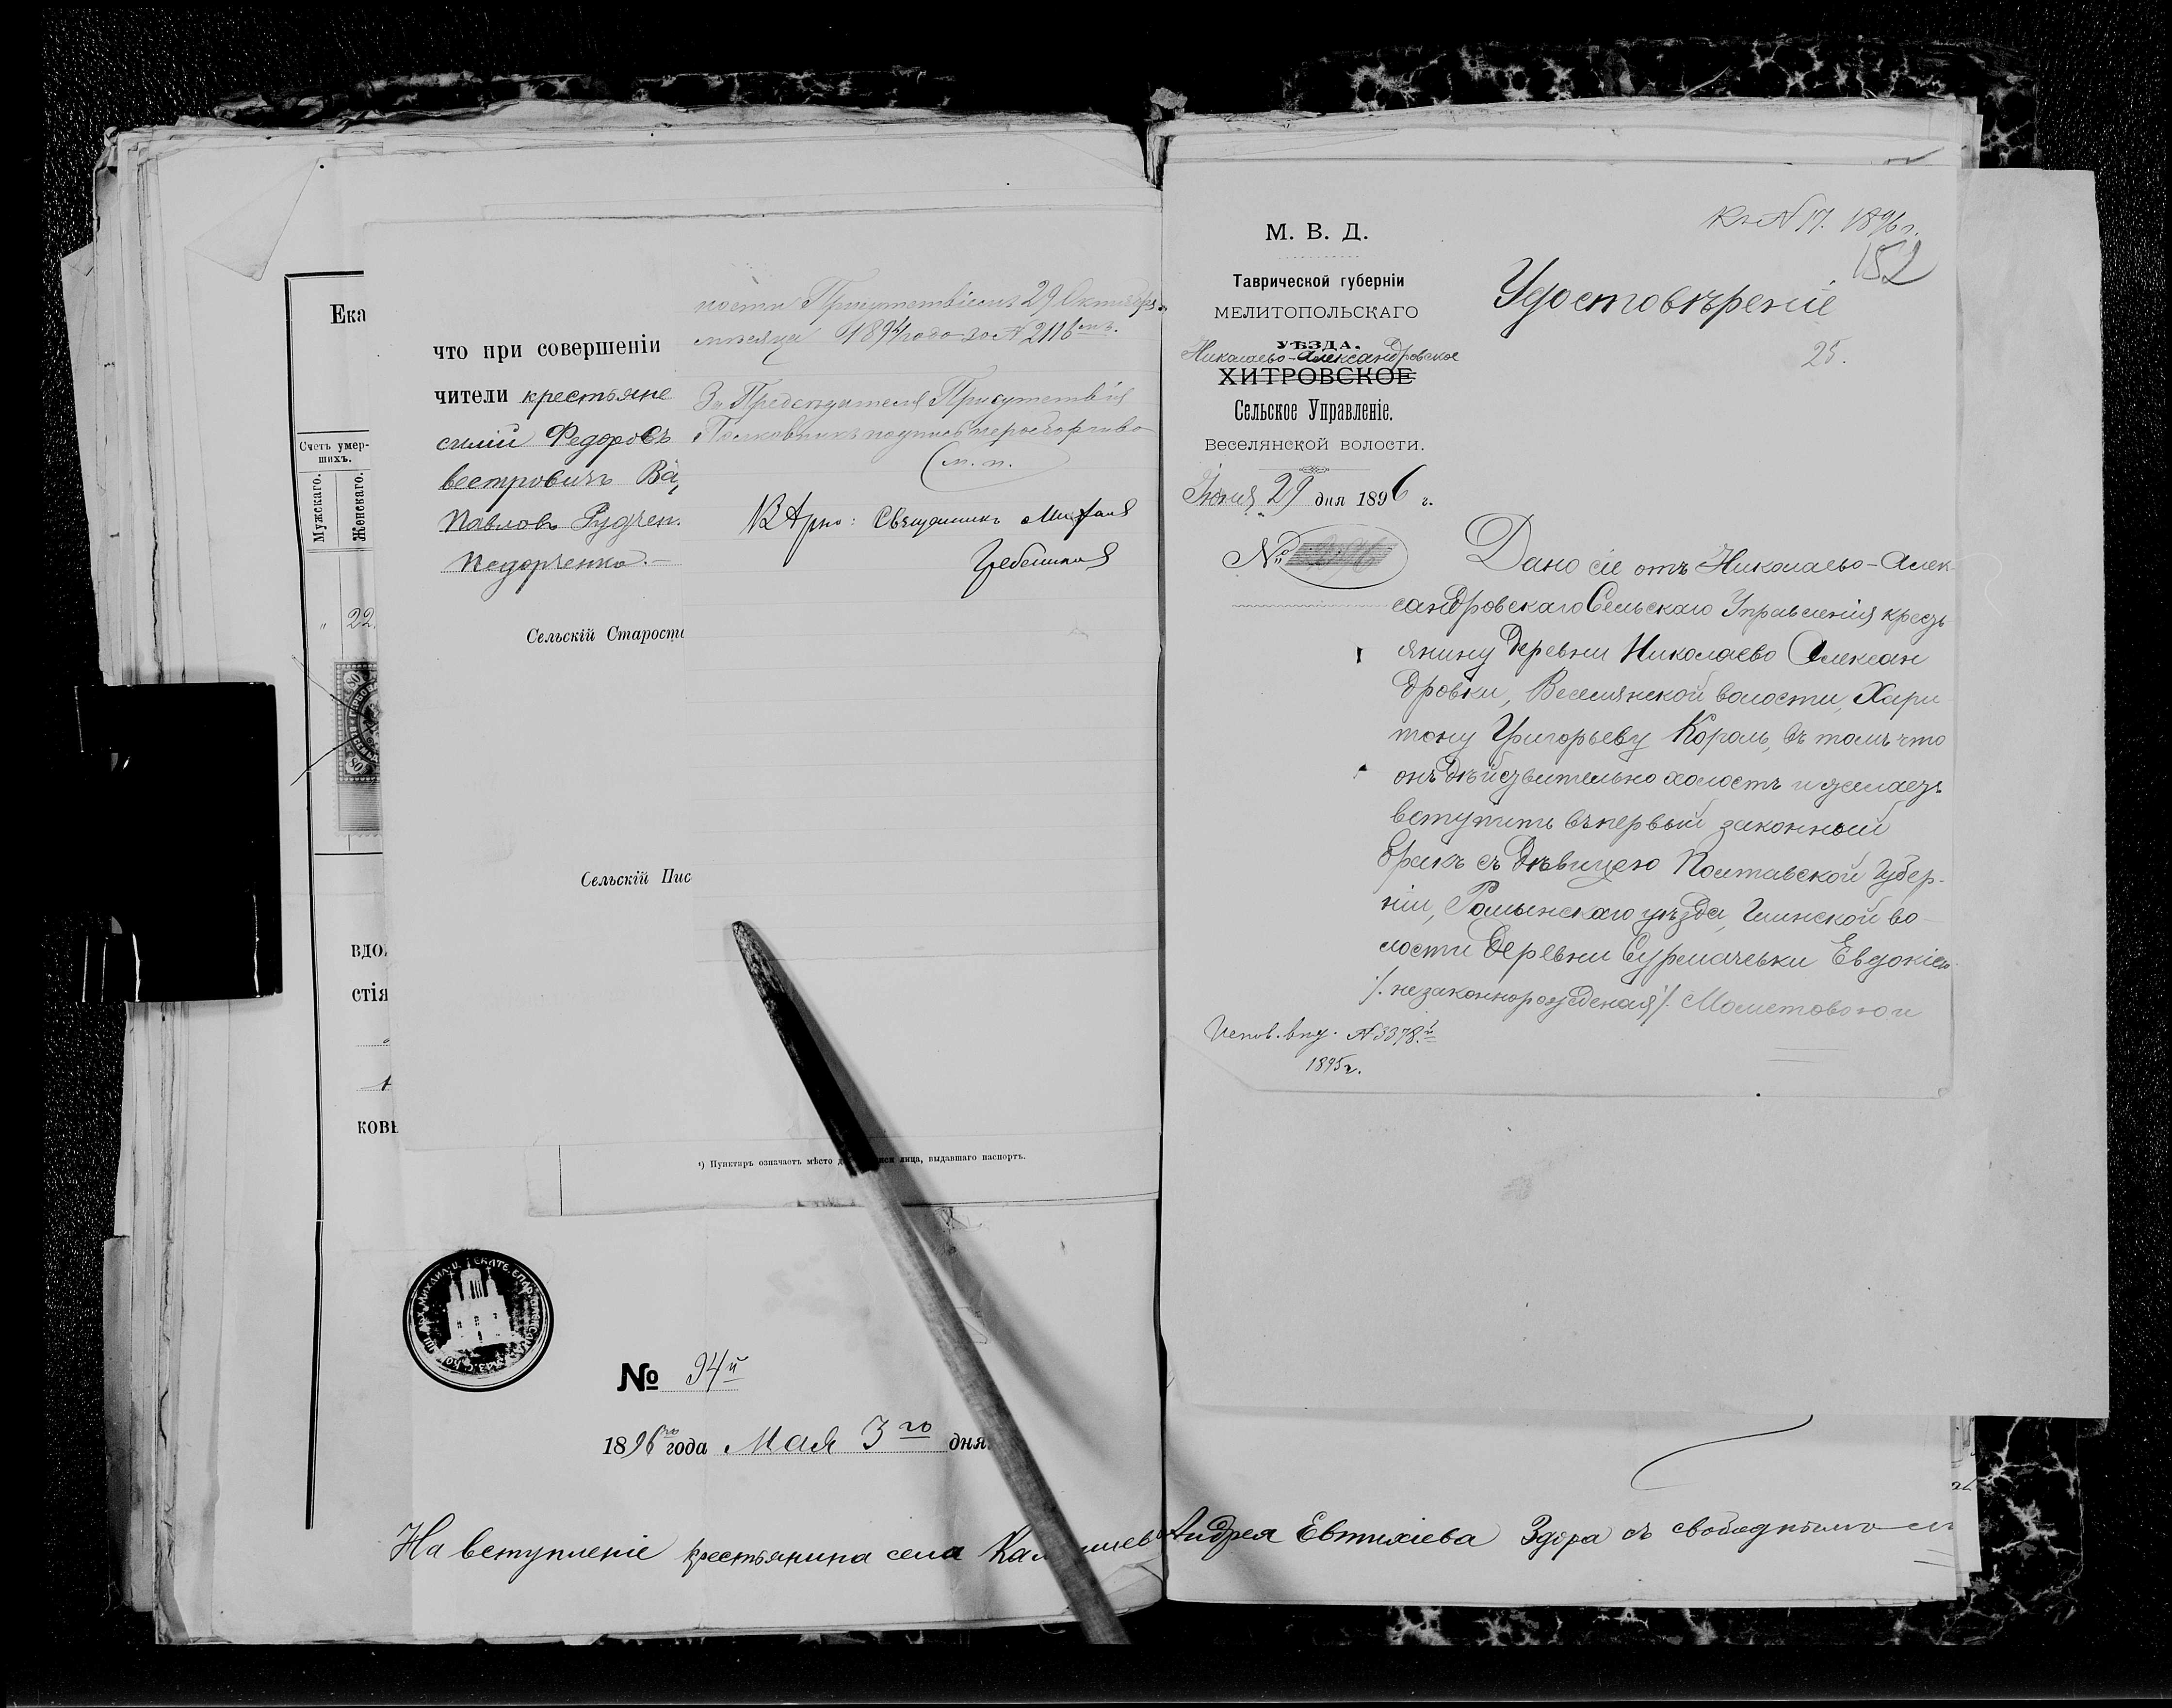 Ека
Счетъ умер-
шихъ.
Мужскаго.
Женскаго.
" 22.
вдо
стія
ковн
что при совершеніи
чители крестьяне
силій Федоровъ
вестровичъ Ва
Павловъ Рудчен
Недорченко. —
Сельскій Старост
Сельскій Пис
ности Присутствіемъ 29 Октября
мѣсяца 1894 года за № 2116мъ.
За Предсѣдателя Присутствія
Полковникъ подпись
(м. п.
Вѣрно: Священникъ Михаилъ
Гребенниковъ
¹) Пунктиръ означаетъ мѣсто для лица, выдавшаго паспортъ.
№ 94й
1896го года Мая 3го дня
На вступленіе крестьянина села Андрея Евтихіева Здора съ
М. В. Д.
Таврической губерніи
МЕЛИТОПОЛЬСКАГО
УѢЗДА.
Николаево-Александровское
ХИТРОВСКОЕ
Сельское Управленіе.
Веселянской волости.
Іюня 29 дня 1896 г.
№
Къ № 17. 1896 г.
152
Удостовѣреніе
25.
Дано сіе отъ Николаево-Алек-
сандровскаго Сельскаго Управленія кресть
янину деревни Николаево Алексан
дровки, Веселянской волости, Хари
тону Григорьеву Король, въ томъ что
онъ дѣйствительно холостъ и желаетъ
вступить въ первый законный
бракъ съ дѣвицею Полтавской Губер-
ніи, Роменскаго уѣзда, Глинской во-
лости деревни Сурмачевки Евдокіею
/. незаконнорожденая /. Мометовою и
Испов. вѣд. № 3378.й
1895 г.